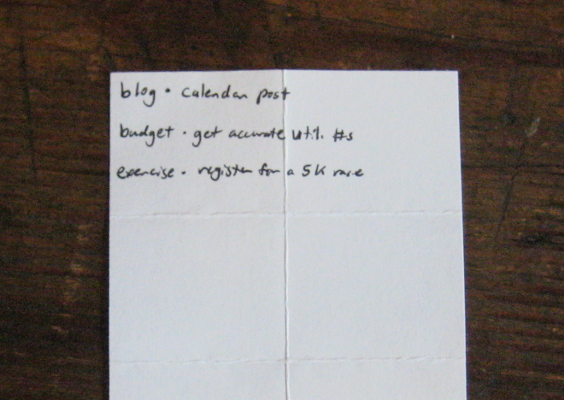 blog • calendar post
budget • get accurate util. #s
exercise • register for a 5K race